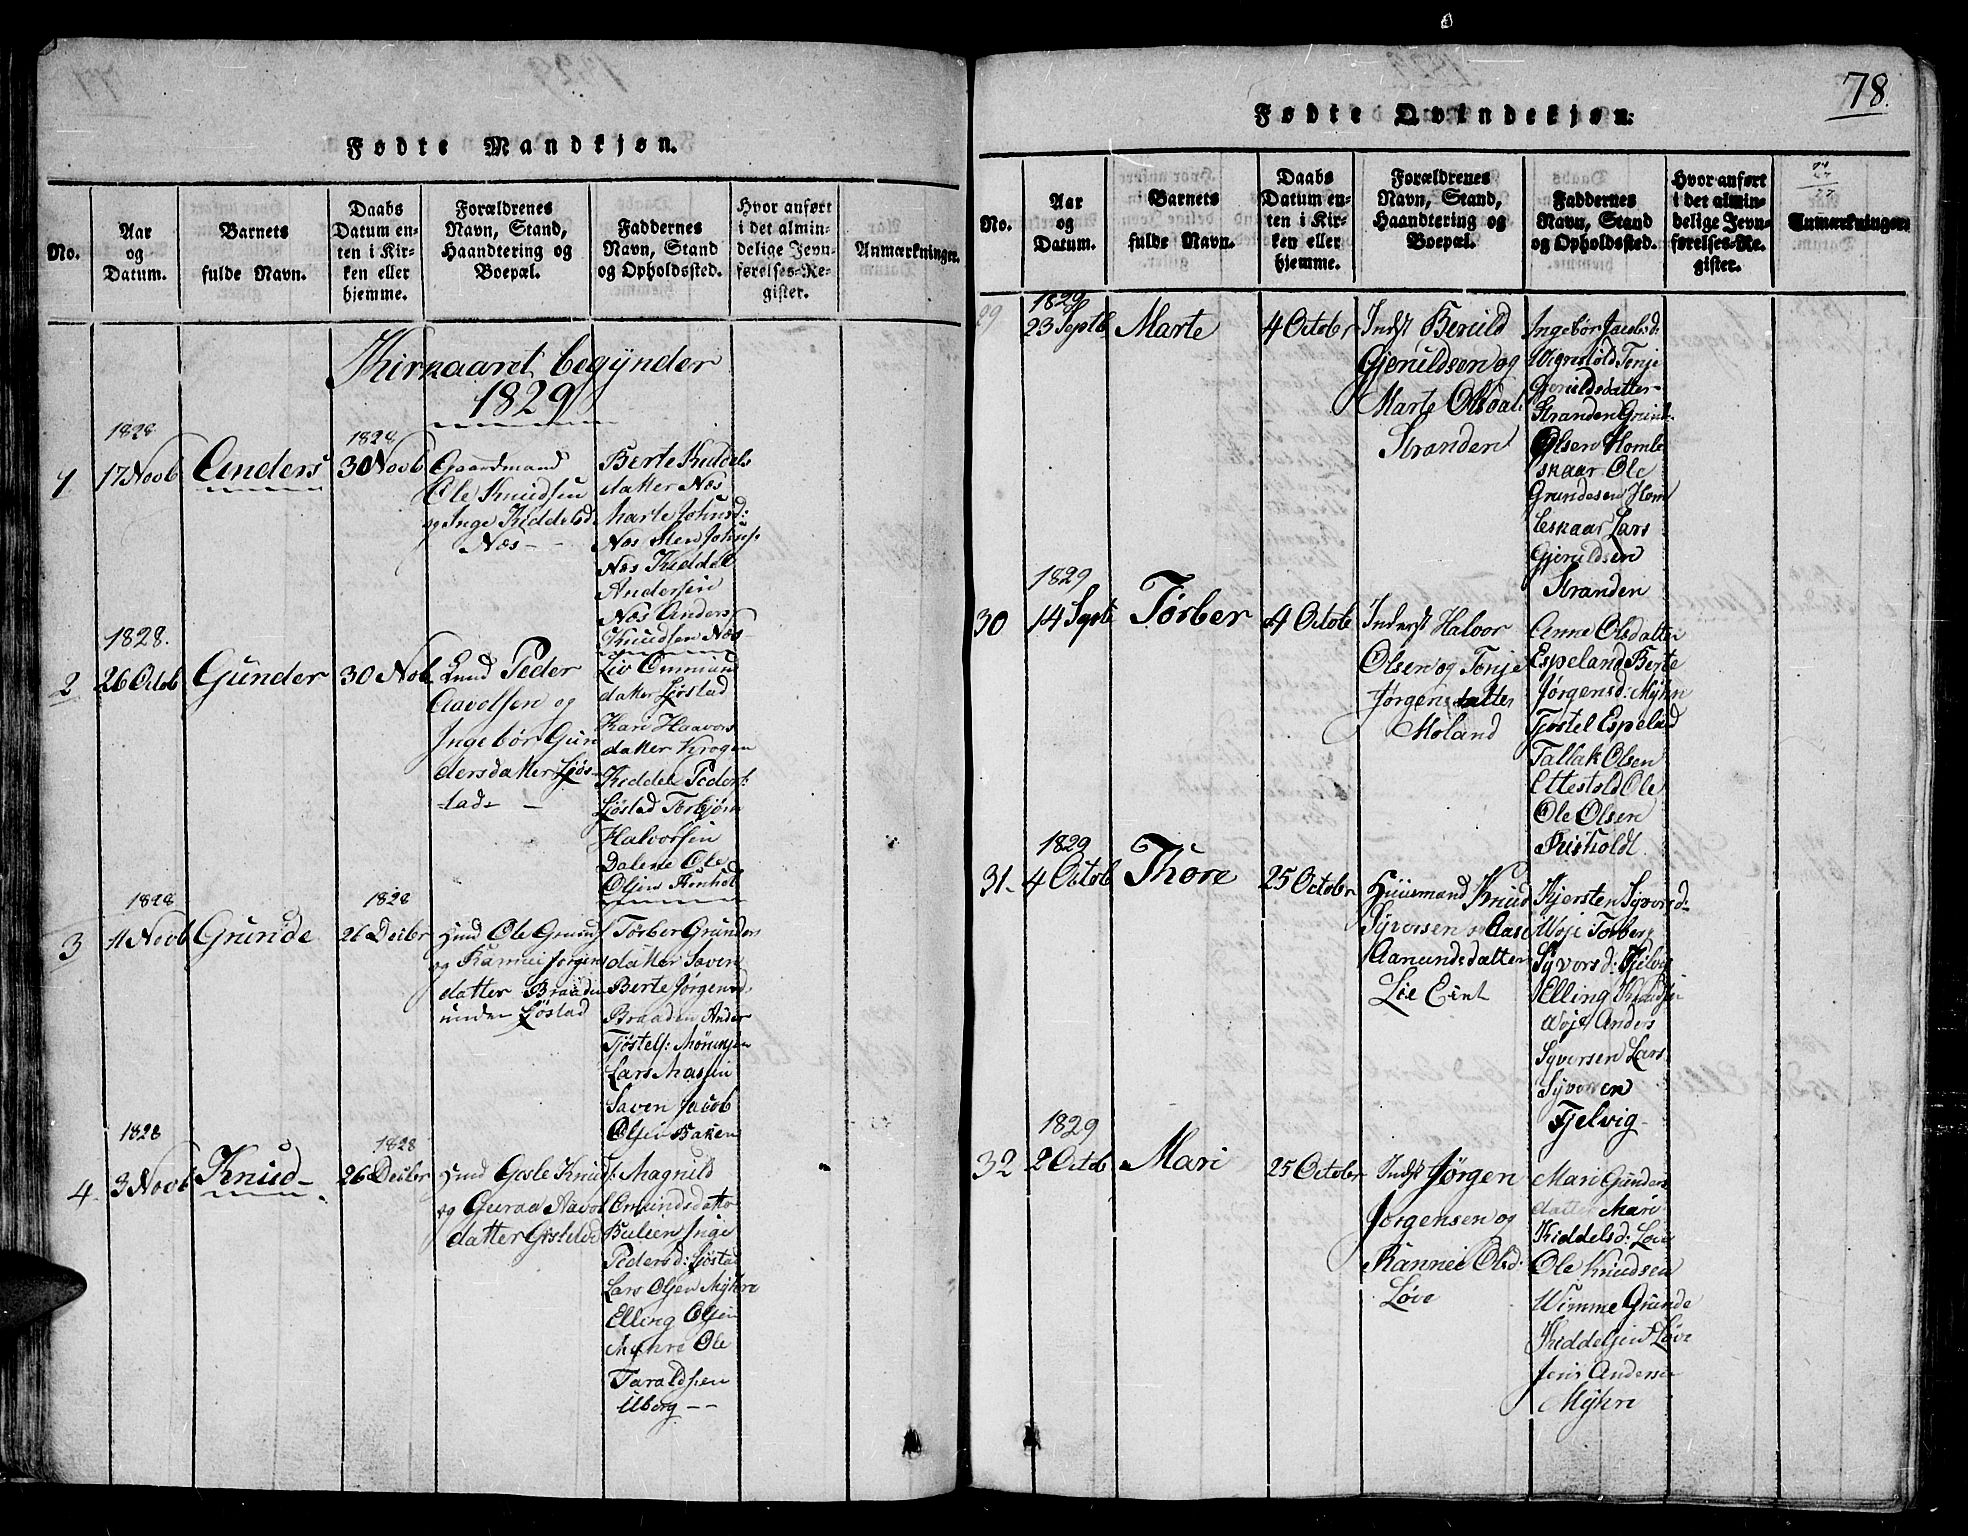 Fødte Mandkjøn.
No.
Aar
og
Datum.
Barnets
fulde Navn.
Daabs
Datum en-
ten i Kir-
ken eller
hjemme.
Forældrenes
Navn, Stand,
Haandtering og
Boepæl.
Faddernes
Navn, Stand
og Opholdssted.
Hvor anført
i det almin-
delige Jevn-
førelses-Re-
gister.
Anmærkninger.
Kirkaaret begynder
1829
1
1828
17 Novb
Anders
1828
30 Novb
Gaardmand
Ole Knudsen
og Inge Kiddelsd
Næs
Berte Kiddels
datter Næs
Marte Johnsd:
Næs
Næs Kiddel
Andersen
Næs Anders
Knudsen Næs
2
1828.
26 Octob
Gunder
30 Nob
Peder
Aavolsen og
Ingebør Gun
dersdatter Ljøs-
tad
Liv Ommund
datter Ljøstad
Kari Haavors
datter Krogen
Kiddel Peders:
Ljøstad Torbjørn
Halvorsen
Dalene Ole
Olsen
3
1828
11 Novb
Grunde
1828
26 Decbr
Huusd Ole Grunds
og Kannei Jorgens
datter Braaden
under Ljøstad
Torber Grunders
datter Saven
Berte Jørgensd:
Braaden Ander
Tjøstels:
Lars
Saven Jacob
Olsen Baken
4
1828
3 Novb
Knud
1828
26 Decbr
Gisle Knuds:
og Guroa Aavol
datter
Magnild
Omundsdatter
Inge
Pedersd: Ljøstad
Lars Olsen Myhre
Elling Olsen
Myhre Ole
Taraldsen
Uberg
78.
Fødte Qvindekjøn.
No.
Aar
og
Datum.
Barnets
fulde Navn.
Daabs
Datum en-
ten i Kir-
ken eller
hjemme.
Forældrenes
Navn, Stand,
Haandtering og
Boepæl.
Faddernes
Navn, Stand
og Opholdssted.
Hvor anført
i det almin-
delige Jevn-
førelses-Re-
gister.
Anmærkninger.
29
1829
23 Septb
Marte
4 Octobr
Indst Beruld
Gjeruldsen og
Marte Olsdat:
Stranden
Ingebør Jacobsd:
Tonje
Gjeruldsdatter
Stranden Grunde
Olsen Homle
skaar Ole
Grundesen Hom
leskaar Lars
Gjeruldsen
Stranden
30
1829
14 Septb
Tørber
4 Octob
Inderst Halvor
Olsen og Tonje
Jørgensdatter
Moland
Anne Olsdatter
Espeland Berte
Jørgensd: Myhre
Tjøstel Espelad
Tallak Olsen
Ettestøld Ole
Ole Olsen
Risholdt
31
1829
4 Octob
Thore
25 Octobr
Huusmand Knud
Syversen og Aase
Aanundsdatter
Lie Eint
Kjersten Syvorsd:
Woje Torber
Syvorsd: Fjelvig
Elling Knudsen
Woje Anders
Syversen Lars
Syvorsen
Fjelvig
32
1829
2 Octob
Mari
25 Octobr
Indst Jørgen
Jørgensen og
Kannei Olsd:
Løve
Mari Gunders
datter Mari
Kiddelsd: Løve
Ole Knudsen
Wimme Grunde
Kiddelsen Løve
Jens Andersen
Myhre